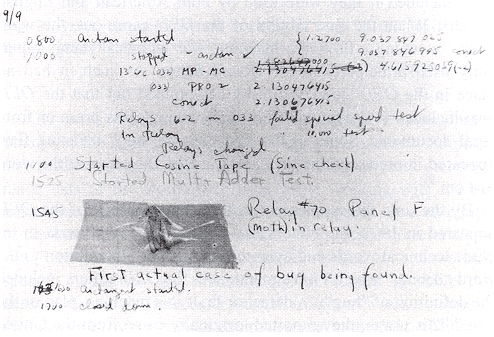 9/9
0800 arctan started { 1.2700 9.037 847 025
1000 " stopped - arctan ✓ 9.037 846 995 correct
13" MP - MC 2.130476415 4.615925059(-2)
(033) PRO 2 2.130476415
correct 2.130676415
Relays 6-2 in 033 failed special speed test
in relay " 10.000 test "
Relays changed
1100 Started Cosine Tape (Sine check)
1525 Started Mult + Adder Test.
1545 Relay #70 Panel F
(moth) in relay.
First actual case of bug being found.
1630 arctangent started.
1700 closed down.